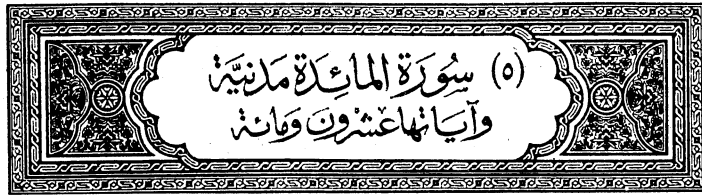 (٥) سُورَة المَائِدَة مَدَنيَّة
وَآيَاتهَا عشْرُونَ وَمَائة